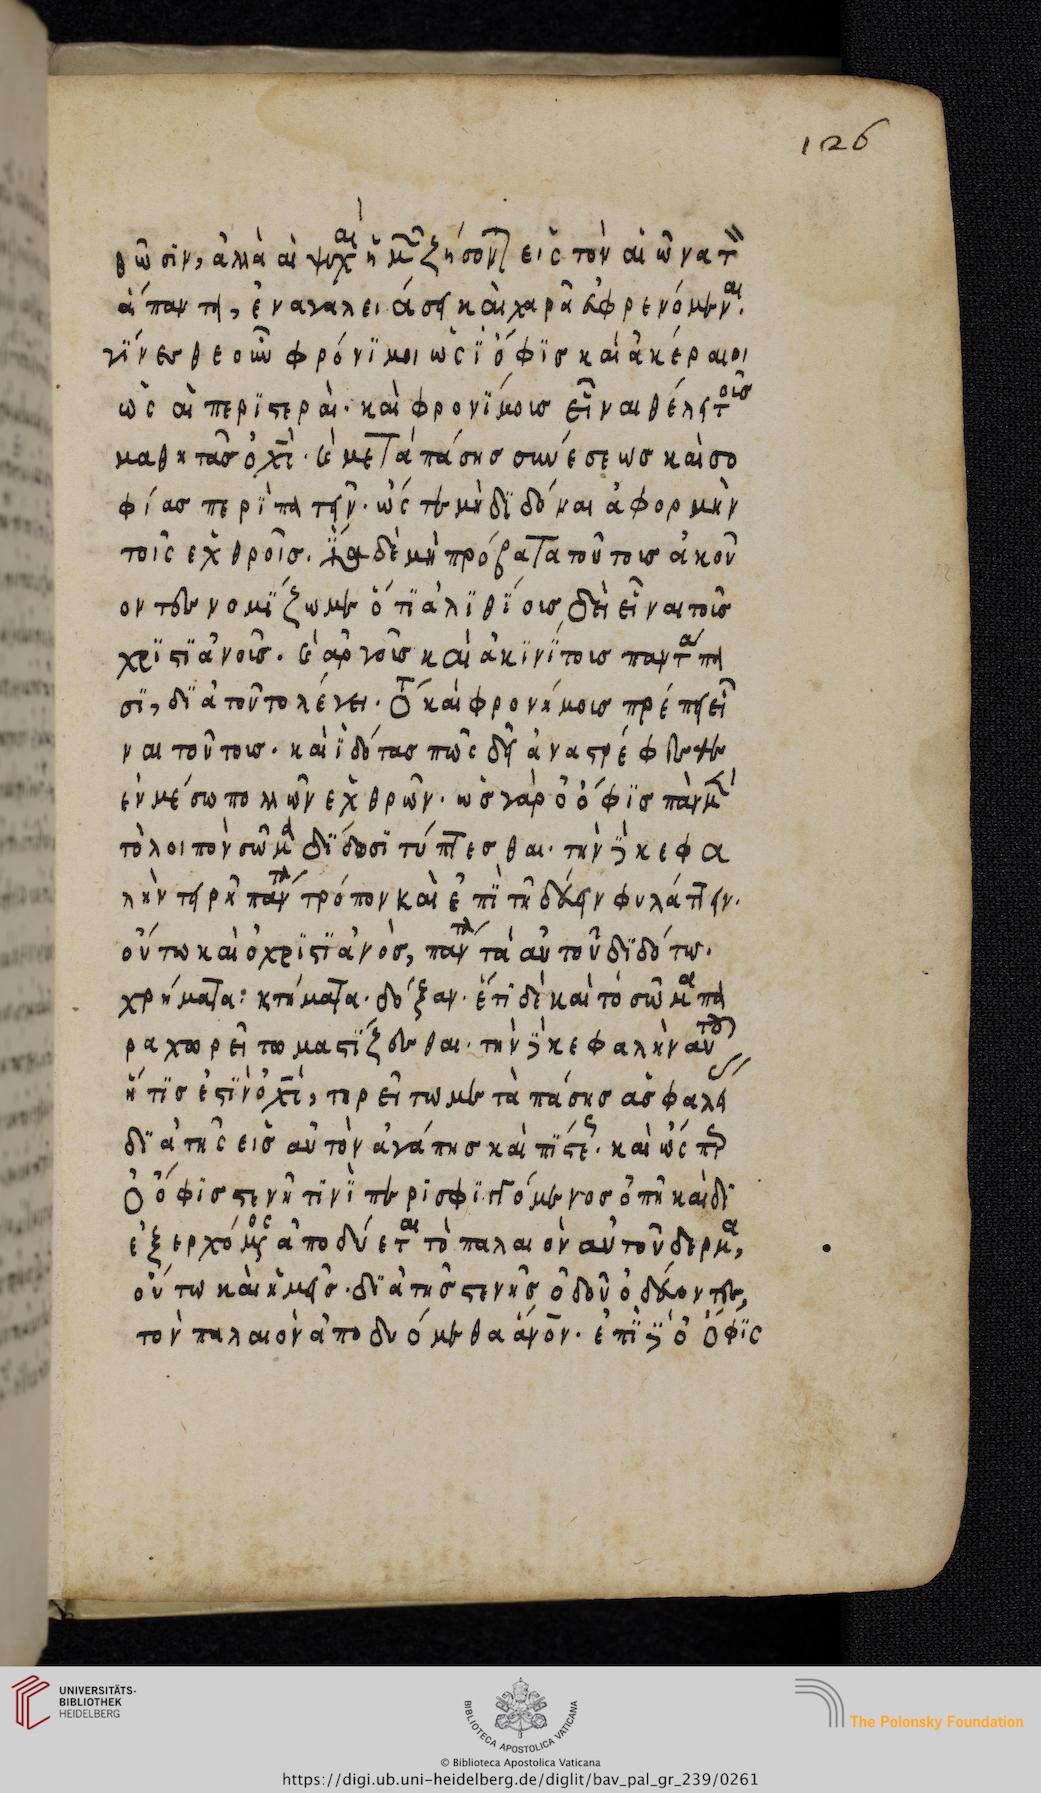 126
θῶσϊν, ἀλλὰ αἱ ψυχαὶ ἡμῶν ζήσονται εἰς τὸν αἰῶνα τὸν
ἅπαντη, ἐν αγαλειάση καὶ χαρᾶ εὐφρενόμεναι.
γίνεσθε οὖν φρόνϊμοι ὡς ϊ ὄφϊς καὶ ἀκέραιοι
ὡς αἱ περϊστεραὶ. καὶ φρονίμοις εἶναι θέλη τοῖς
μαθητὰς ὁ χ̅ς̅. καὶ μετὰ πάσης συνέσεως καὶ σο
φίας περϊπατῆν. ὥστε μὴ δϊδόναι ἀφορμὴν
τοῖς εχθροῖς. ἵνα δὲ μὴ πρόβατα τούτοις ἀκού
οντες νομίζωμεν ὅτϊ ἀλϊθίοις δεῖ εἶναι τοῖς
χρϊστϊανοῖς. καὶ ἀργοῖς καὶ ἀκϊνίτοις παντάπα
σϊ, δϊὰ τοῦτο λέγει. ὅτι καὶ φρονήμοις πρέπη εἶ
ναι τούτοις. καὶ ϊδότας πῶς δῆ ἀναστρέφεσθε
ἐν μέσω πολλῶν εχθρῶν. ὡς γὰρ ὁ ὄφϊς πὰν μὲν
τὸ λοιπὸν σῶμα δίδωσϊ τύπτεσθαι. τὴν δὲ κεφα
λὴν τηρῆ πάντα τρόπον καὶ ἐπϊ τῆ δύσην φυλάττην.
οὕτω καὶ ὁ χρϊστϊανὸς, πάντα τὰ αὐτοῦ δϊδότω.
χρήματα: κτήματα. δόξαν. ἔτϊ δὲ καὶ τὸ σῶμα πα
ραχωρεῖτω μαστίζεσθαι. τὴν δὲ κεφαλὴν αὐτοῦ
ἥ τϊς ἐστϊν ὁ χ̅ς̅, τηρεῖτω μετὰ πάσης ἀσφαλεί
δϊὰ τῆς εἰς αὐτὸν ἀγάπης καὶ πίστεως. καὶ ὥσπερ
ὁ ὄφϊς στενῆ τϊνϊ περϊσφϊγγόμενος ὀπῆ καὶ δϊ
ἐξερχόμενος ἀποδύεται τὸ παλαιὸν αὐτοῦ δερμα,
οὕτω καὶ ἡμεῖς. δϊὰ τῆς στενῆς ὁδοῦ ὁδεύοντες,
τὸν παλαιὸν ἀποδυόμεθα ἄν̅ο̅ν. ἐπϊ δὲ ὁ ὄφϊς
UNIVERSITÄTS-
BIBLIOTHEK
HEIDELBERG
BIBLIOTECA APOSTOLICA VATICANA
The Polonsky Foundation
© Biblioteca Apostolica Vaticana
https://digi.ub.uni-heidelberg.de/diglit/bav_pal_gr_239/0261